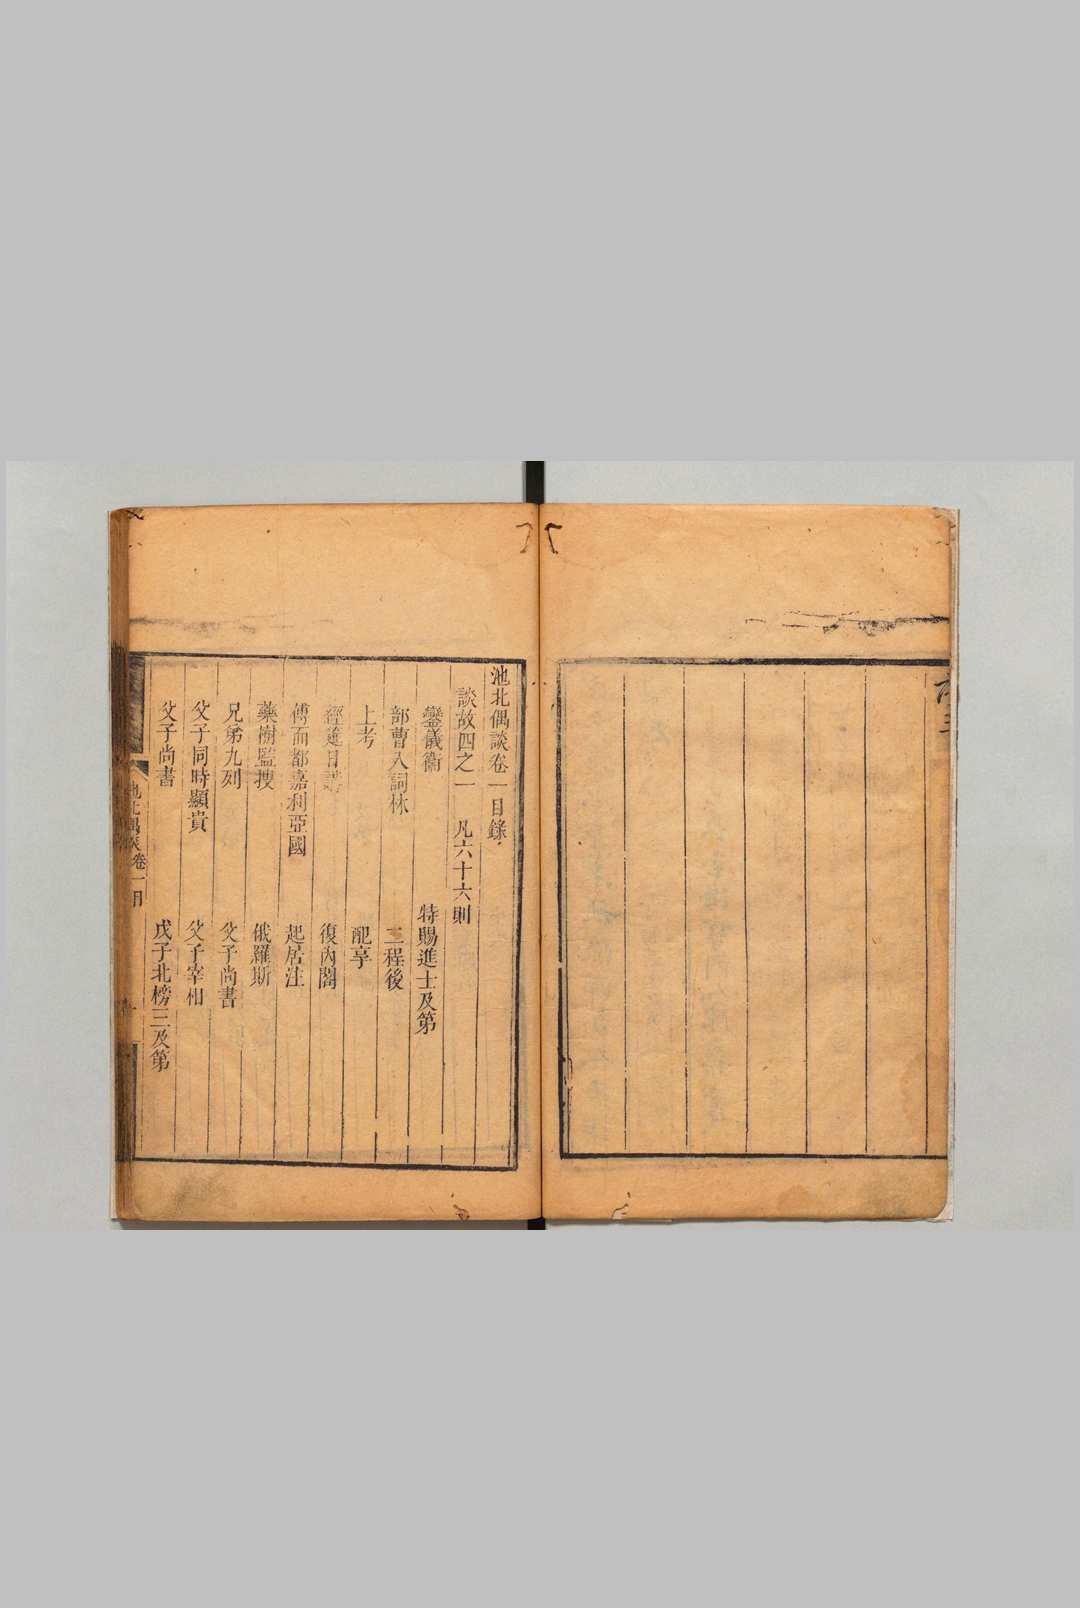 池北偶談卷一目錄
談故四之一 凡六十六則
鑾儀衞 特賜進士及第
部曹入詞林 二程後
上考 配享
經筵日講 復內閣
傅而都嘉利亞國 起居注
藥樹監搜 俄羅斯
兄弟九列 父子尚書
父子同時顯貴 父子宰相
父子尚書 戊子北榜三及第
池北偶談卷一目